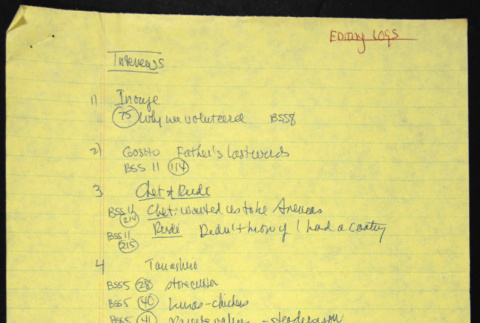 EDITING LOGS
Interviews
1) Inouye
75 Why we volunteered BSS8
2) Gosho Father's last words
BSS 11 114
3 Chet & Rudi
BSS 11 Chet: wanted us to be Americans
214
BSS 11 Rudi Didn't know if I had a country
215
4
BSS5 28
BSS5 40 Lunas - chickens
BSS5 41